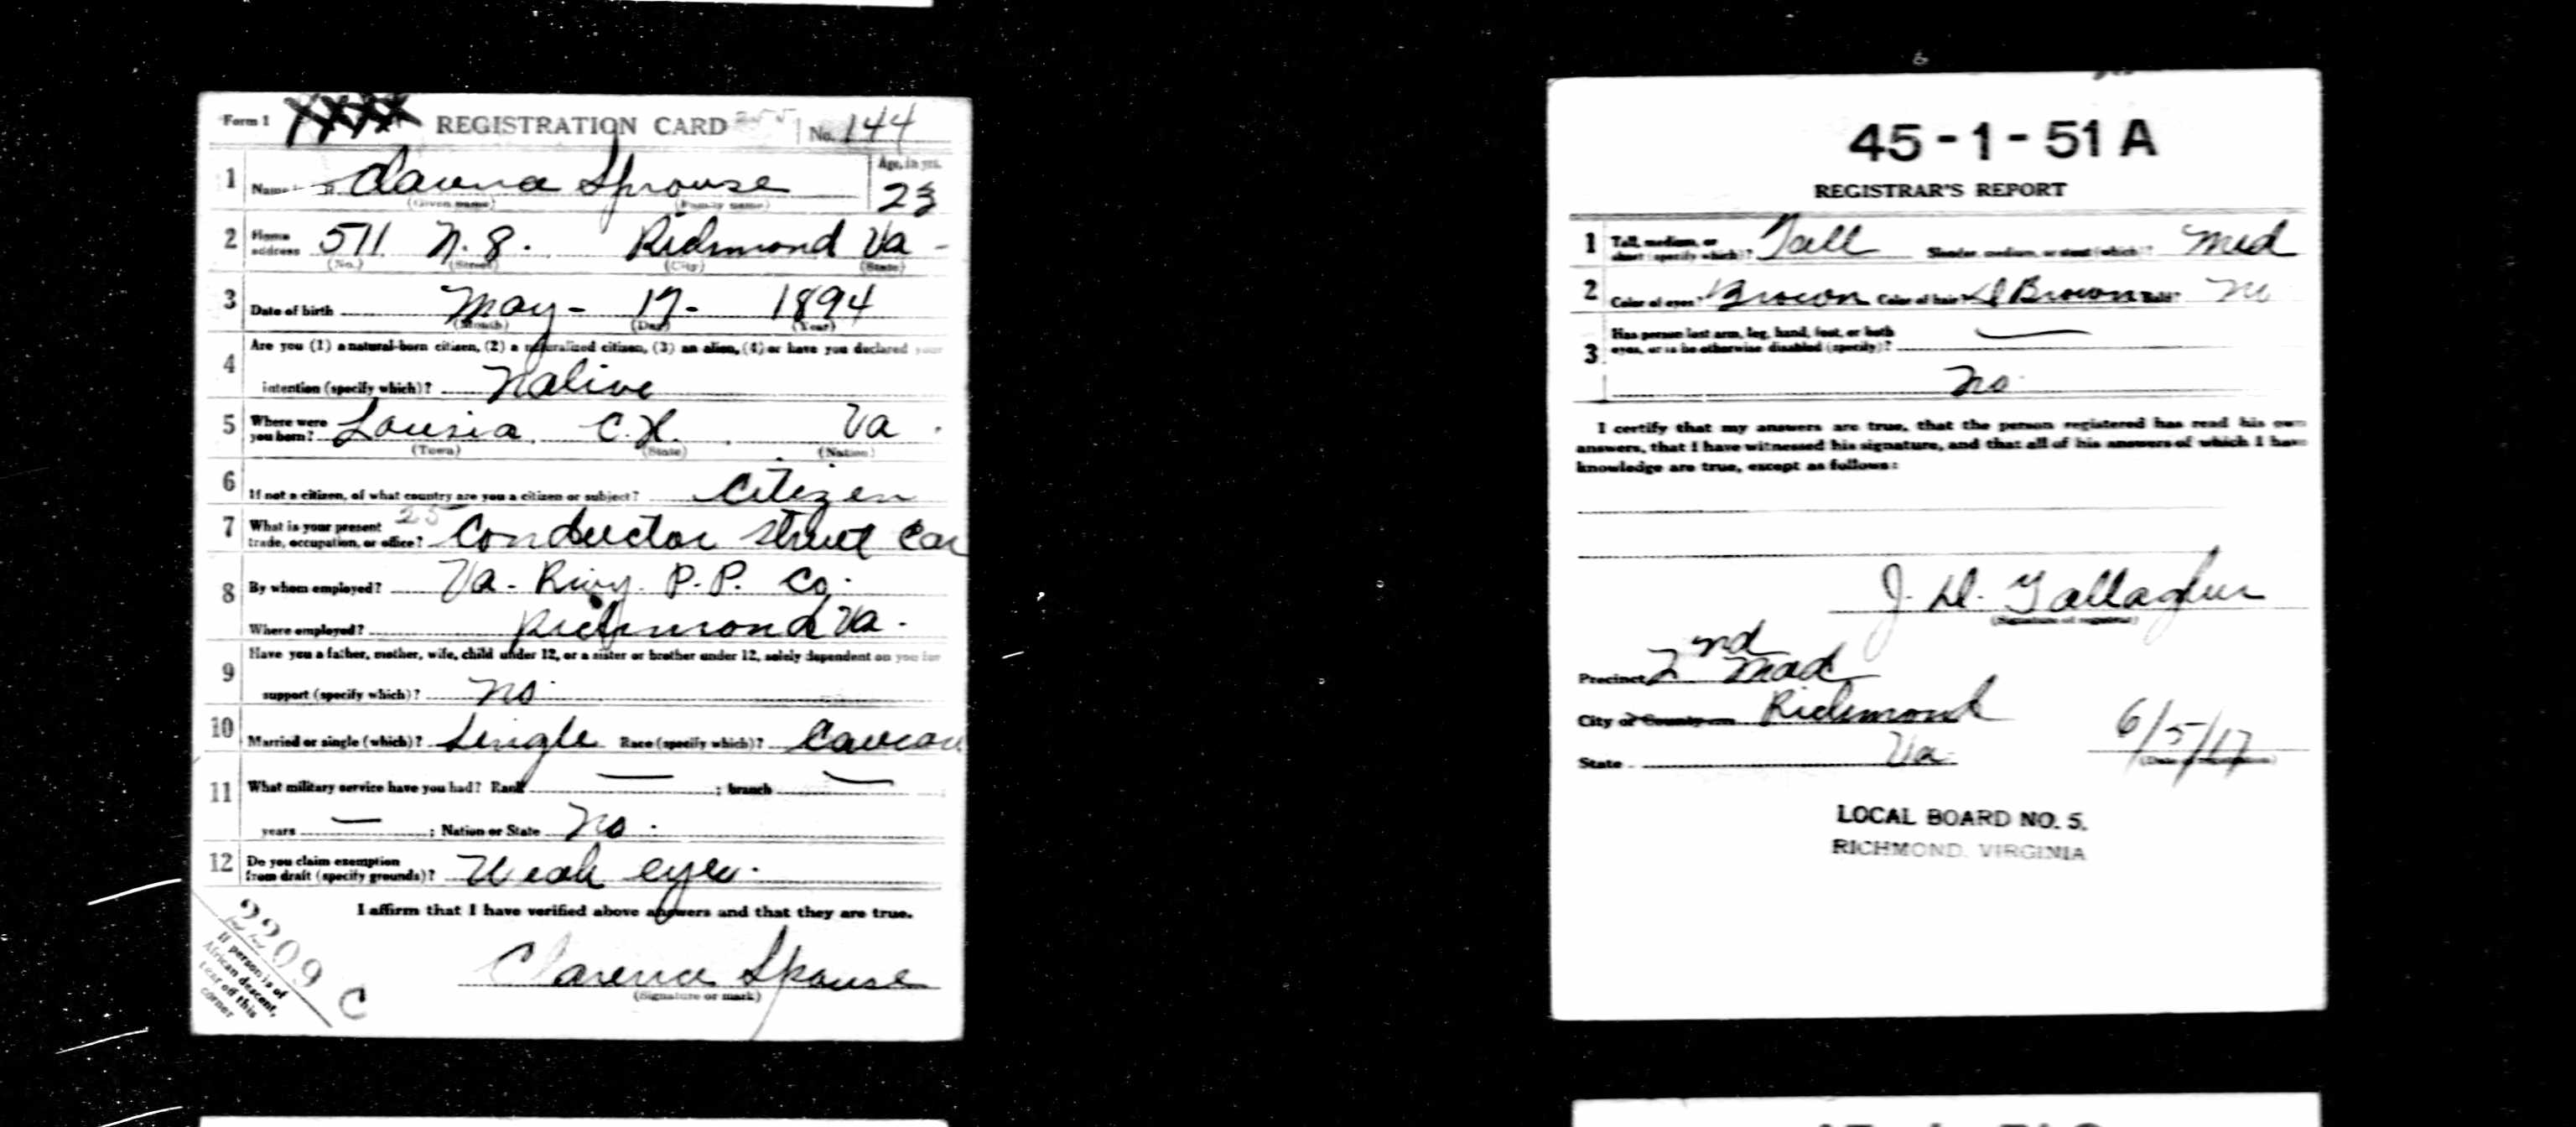 Form 1 REGISTRATION CARD No. 144
1 Name in full Clarence Sprouse Age, in yrs. 23
(Given name) (Family name)
2 Home address 511 N. 8. Richmond Va -
(No.) (Street) (City) (State)
3 Date of birth May - 17 - 1894
(Month) (Day) (Year)
4 Are you (1) a natural-born citizen, (2) a naturalized citizen, (3) an alien, (4) or have you declared your
intention (specify which)? Native
5 Where were you born? Lousia C.H. Va
(Town) (State) (Nation)
6 If not a citizen, of what country are you a citizen or subject? Citizen
7 What is your present trade, occupation, or office? 25 Conductor Street Car
8 By whom employed? Va. Rwy. P. P. Co.
Where employed? Richmond Va.
9 Have you a father, mother, wife, child under 12, or a sister or brother under 12, solely dependent on you for
support (specify which)? No
10 Married or single (which)? Single Race (specify which)? Caucan
11 What military service have you had? Rank — ; branch —
years — ; Nation or State No.
12 Do you claim exemption from draft (specify grounds)? Weak eyes.
I affirm that I have verified above answers and that they are true.
Clarence Sprouse
(Signature or mark)
2209 C
If person is of
African descent,
tear off this
corner
45-1-51 A
REGISTRAR'S REPORT
1 Tall, medium, or short (specify which)? Tall Slender, medium, or stout (which)? Med
2 Color of eyes? Brown Color of hair? D Brown Bald? No
3 Has person lost arm, leg, hand, foot, or both
eyes, or is he otherwise disabled (specify)? —
No
I certify that my answers are true, that the person registered has read his own
answers, that I have witnessed his signature, and that all of his answers of which I have
knowledge are true, except as follows:
J. H. Gallagher
(Signature of registrar)
Precinct 2nd Mad
City or County Richmond
State Va. 6/5/17
LOCAL BOARD NO. 5.
RICHMOND, VIRGINIA